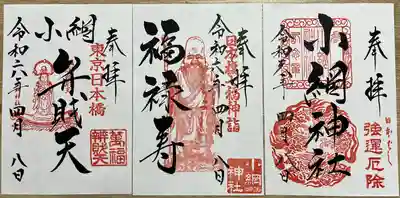 奉拝
東京日本橋
小網
弁財天
令和六年四月八日
萬福
舞財天
奉拝
日本橋七福神詣
福禄寿
令和六年四月八日
小網
神社
奉拝
強運厄除
小網神社
令和六年四月八日